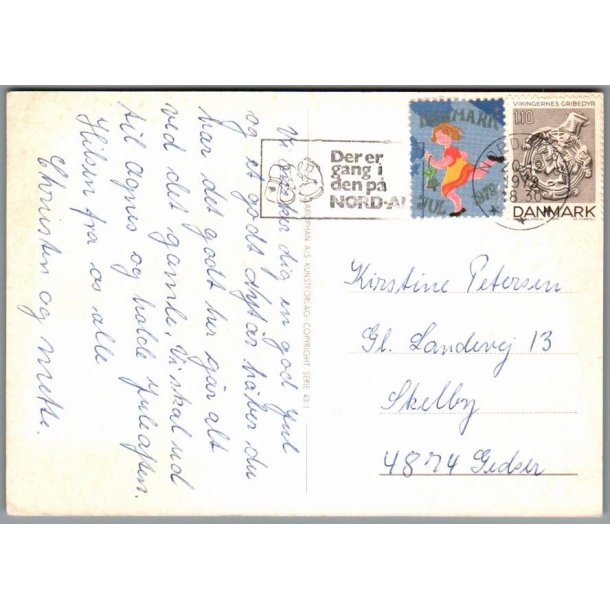 Vi ønsker dig en god Jul
og et godt nytår håber du
har det godt her går alt
ved det gamle. Vi skal ud
til Agnes og holde Juleaften.
Hilsen fra os alle
Christen og Mette.
ARPHAN A.S KUNSTFORLAG COPYRIGHT SERIE 431
Der er
gang i
den på
NORD-AL
DANMARK
JUL
1979
VIKINGERNES GRIBEDYR
110
DANMARK
NORD
1979
8.30
Kirstine Petersen
Gl. Landevej 13
Skelby
4874 Gedser